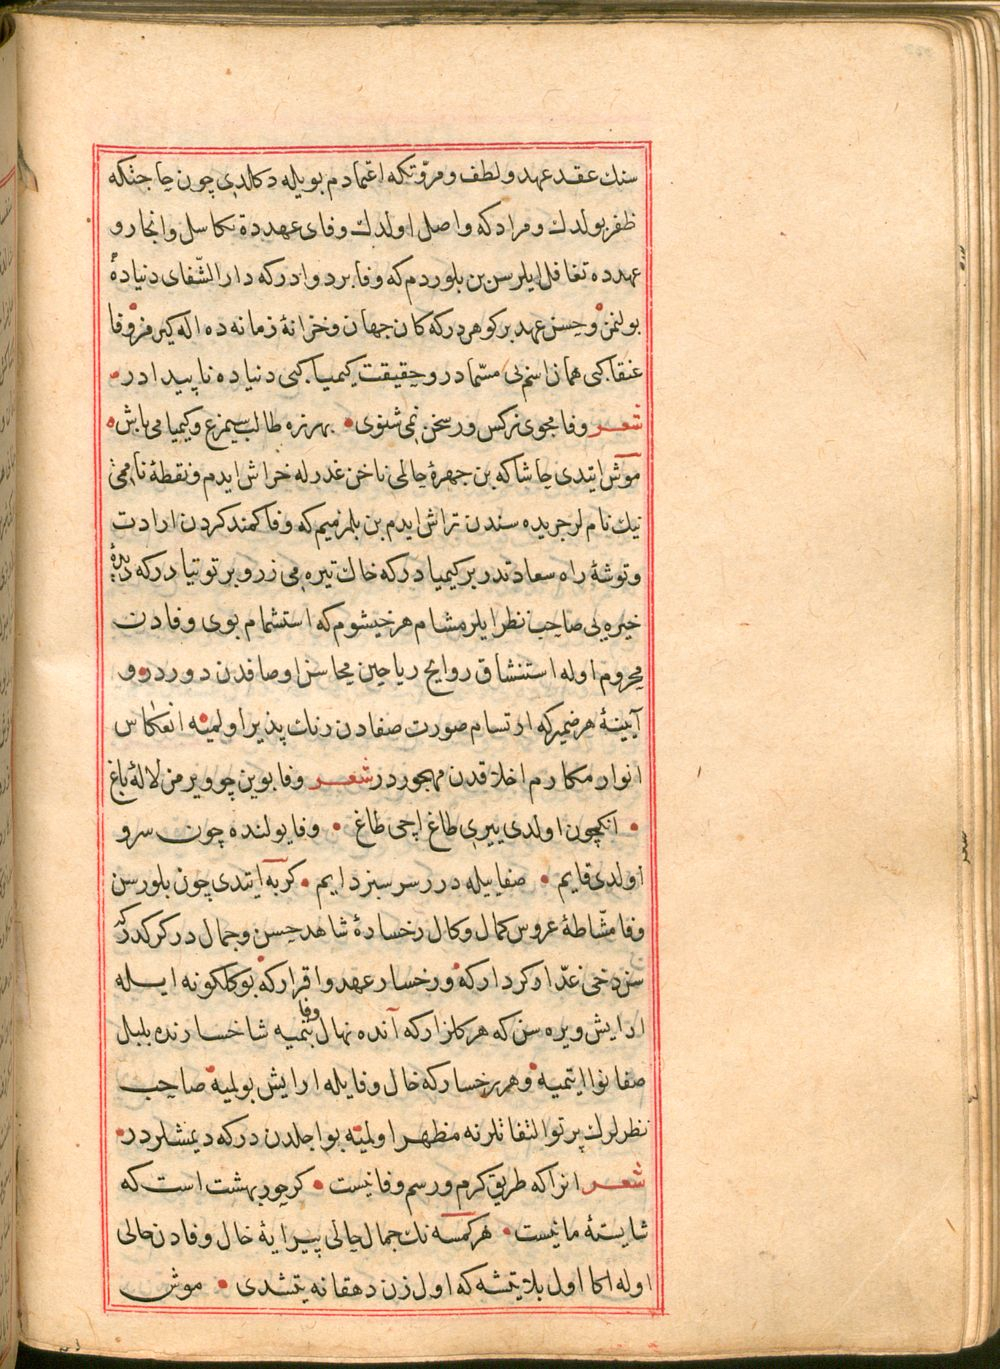 سنك عقد عهد و لطف و مروّتكه اعتمادم بويله دكالدى چون حاجتكه
ظفر بولدك و مرادكه واصل اولدك وفاى عهدده تكاسل و انجاز و
عهدده تغافل ايلرسن بن بلوردم كه وفا بر دوادركه دار الشّفاى دنياده
بولنمز و حسن عهد بر كوهردركه كان جهان و خزانهٔ زمانه ده اله كيرمز وفا
عنقا كبى همان اسم بى مسمّادر و حقيقت كيميا كبى دنياده ناپيدادر
شعر وفا مجوى ز كس ور سخن نمى شنوى بهرزه طالب سيمرغ و كيميا مى باش
موش ايتدى حاشا كه بن چهرهٔ حالمى ناخن غدرله خراش ايدم و نقطهٔ نامى
نيك ناملر جريده سندن تراش ايدم بن بلمزميم كه وفا كمند كردن ارادت
و توشهٔ راه سعادتدر بر كيميادركه خاك تيره يى زر و بر توتيادركه ديدهٔ
خيره يى صاحب نظر ايلر مشام هر خيشوم كه استشمام بوى وفادن
محروم اوله استنشاق روايح رياحين محاسن اوصافدن دوردر و
آيينهٔ هر ضميركه ارتسام صورت صفادن رنك پذير اولميه انعكاس
انوار مكارم اخلاقدن مهجوردر شعر وفا بوين چو ويرمز لالهٔ باغ
انكچون اولدى ييرى طاغ اچى طاغ وفا يولنده چون سرو
اولدى قايم صفا بيله در سرسبز دايم كربه ايتدى چون بلورسن
وفا مشّاطهٔ عروس كمال و كال رخسارهٔ شاهد حسن و جمالدر كركدركه
سن دخى عذار كرداركه و رخسار عهد و اقراركه بو كلكونه ايله
ارايش ويره سن كه هر كلزاركه آنده نهال وفا بتميه شاخسارنده بلبل
صفا نوا ايتميه و هر رخساركه خال وفايله ارايش بولميه صاحب
نظرلرك پرتو التفاتلرنه مظهر اولميه بو اجلدن دركه ديمشلردر
شعر انرا كه طريق كرم و رسم وفا نيست كر حور بهشت است كه
شايستهٔ ما نيست هر كمسه نك جمال حالى پيرايهٔ خال وفادن خالى
اوله اكا اول بلا يتشه كه اول زن دهقانه يتشدى موش